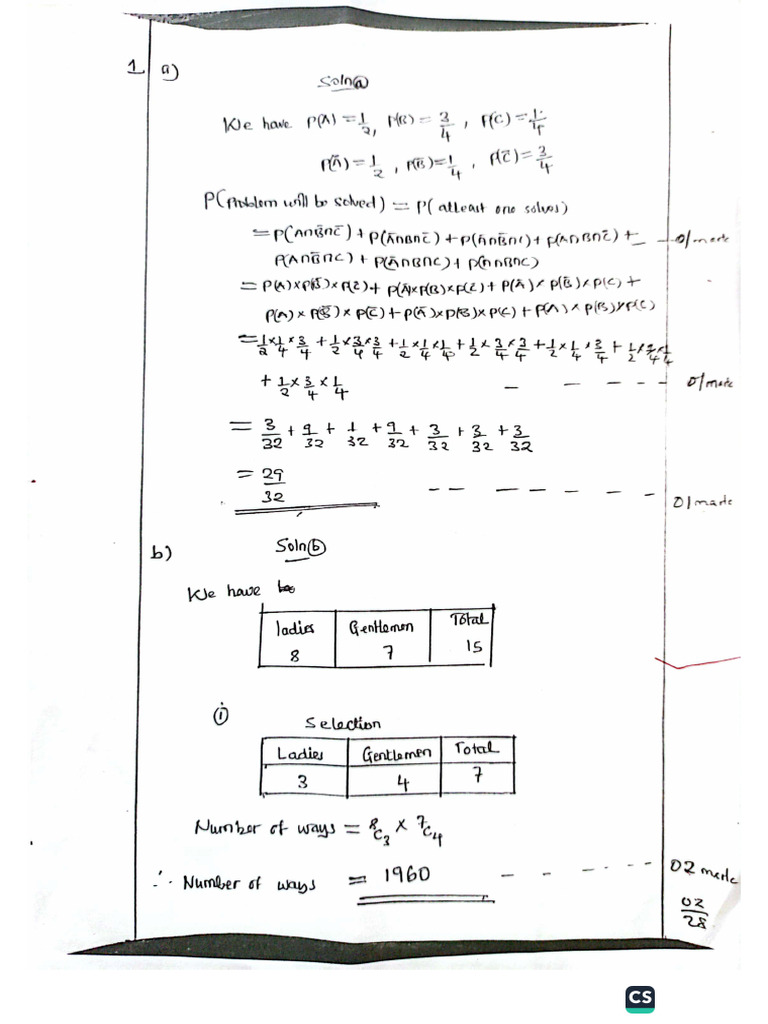 1 a)
Soln(a)
We have P(A) = 1/2, P(B) = 3/4, P(C) = 1/4
P(Ā) = 1/2, P(B̄) = 1/4, P(C̄) = 3/4
P(Problem will be solved) = P(atleast one solves)
= P(A∩B̄∩C̄) + P(Ā∩B∩C̄) + P(Ā∩B̄∩C) + P(A∩B∩C̄) + 01 mark
P(A∩B̄∩C) + P(Ā∩B∩C) + P(A∩B∩C)
= P(A)×P(B̄)×P(C̄) + P(Ā)×P(B)×P(C̄) + P(Ā)×P(B̄)×P(C) +
P(A)×P(B̄)×P(C̄) + P(Ā)×P(B)×P(C) + P(A)×P(B)×P(C)
= 1/2×1/4×3/4 + 1/2×3/4×3/4 + 1/2×1/4×1/4 + 1/2×3/4×3/4 + 1/2×1/4×3/4 + 1/2×3/4×1/4
+ 1/2×3/4×1/4 - - - - - 01 mark
= 3/32 + 9/32 + 1/32 + 9/32 + 3/32 + 3/32 + 3/32
= 29/32 - - - - - - - 01 mark
b) Soln(b)
We have
ladies Gentlemen Total
8 7 15
(i) Selection
Ladies Gentlemen Total
3 4 7
Number of ways = 8C3 × 7C4
∴ Number of ways = 1960 - - - - - - 02 mark
02/28
CS